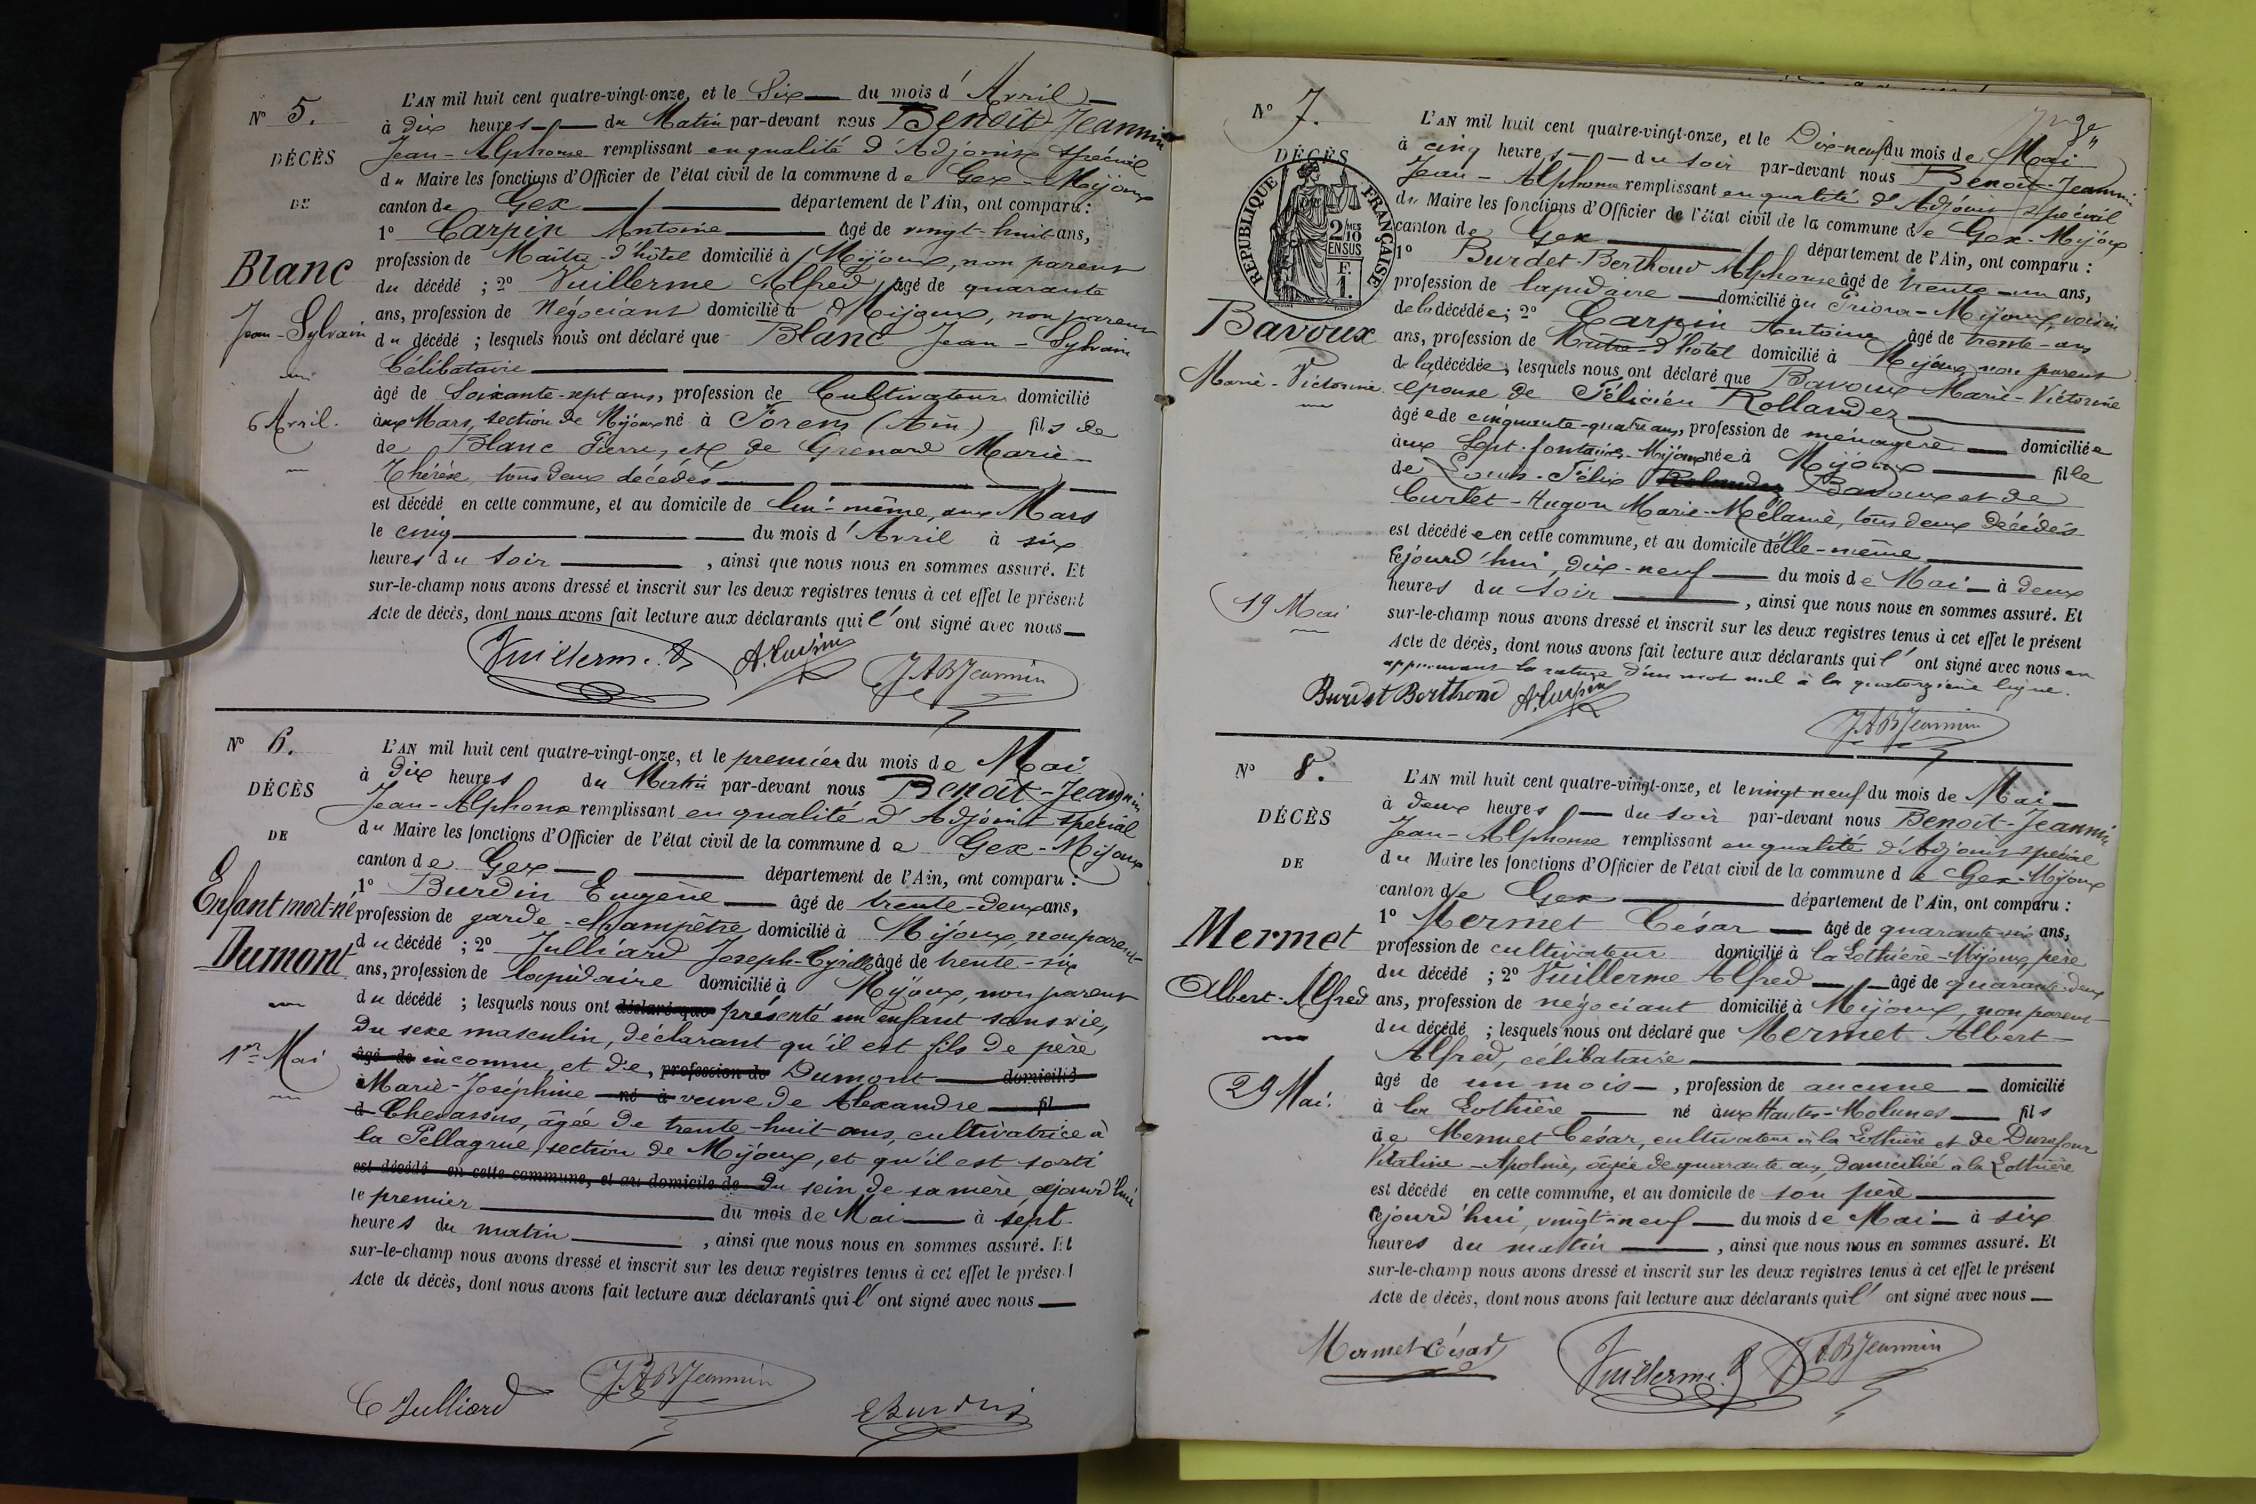 N° 5.
DÉCÈS
DE
Blanc
Jean-Sylvain
6 Avril.
L'AN mil huit cent quatre-vingt-onze, et le Six du mois d'Avril
à dix heures du Matin par-devant nous Benoît-Jeannin
Jean-Alphonse remplissant en qualité d'Adjoint spécial
du Maire les fonctions d'Officier de l'état civil de la commune de Gex-Mijoux
canton de Gex département de l'Ain, ont comparu :
1° Carpin Antoine âgé de vingt-huit ans,
profession de Maître d'hôtel domicilié à Mijoux, non parent
du décédé ; 2° Vuillerme Alfred, âgé de quarante
ans, profession de Négociant domicilié à Mijoux, non parent
du décédé ; lesquels nous ont déclaré que Blanc Jean-Sylvain
Célibataire
âgé de Soixante-sept ans, profession de Cultivateur domicilié
aux Mars, section de Mijoux né à Sorens (Ain) fils de
de Blanc Pierre, et de Grenard Marie-
Thérèse, tous deux décédés
est décédé en cette commune, et au domicile de lui-même, aux Mars
le cinq du mois d'Avril à six
heures du soir , ainsi que nous nous en sommes assuré. Et
sur-le-champ nous avons dressé et inscrit sur les deux registres tenus à cet effet le présent
Acte de décès, dont nous avons fait lecture aux déclarants qui l'ont signé avec nous
Vuillerme A. A. Carpin J A B Jeannin
N° 6.
DÉCÈS
DE
Enfant mort-né
Dumont
1er Mai
L'AN mil huit cent quatre-vingt-onze, et le premier du mois de Mai
à dix heures du Matin par-devant nous Benoît-Jeannin
Jean-Alphonse remplissant en qualité d'Adjoint spécial
du Maire les fonctions d'Officier de l'état civil de la commune de Gex-Mijoux
canton de Gex département de l'Ain, ont comparu :
1° Burdin Eugène âgé de trente-deux ans,
profession de garde-champêtre domicilié à Mijoux, non parent
du décédé ; 2° Julliard Joseph-Cyrille âgé de trente-six
ans, profession de lapidaire domicilié à Mijoux, non parent
du décédé ; lesquels nous ont déclaré que présenté un enfant sans vie,
du sexe masculin, déclarant qu'il est fils de père
âgé de inconnu, et de, profession de Dumont domicilié
à Marie-Joséphine né à veuve de Alexandre fil
d Chevassus, âgée de trente-huit ans, cultivatrice à
la Pellagrue, section de Mijoux, et qu'il est sorti
est décédé en cette commune, et au domicile de du sein de sa mère cejourd'hui
le premier du mois de Mai à sept
heures du matin , ainsi que nous nous en sommes assuré. Et
sur-le-champ nous avons dressé et inscrit sur les deux registres tenus à cet effet le présent
Acte de décès, dont nous avons fait lecture aux déclarants qui l'ont signé avec nous
C Julliard J A B Jeannin E Burdin
N° 7.
DÉCÈS
RÉPUBLIQUE FRANÇAISE
2 MES
10
EN SUS
F.
1.
Bavoux
Marie-Victorine
19 Mai
L'AN mil huit cent quatre-vingt-onze, et le Dix-neuf du mois de Mai
à cinq heures du soir par-devant nous Benoît-Jeannin
Jean-Alphonse remplissant en qualité d'Adjoint spécial
du Maire les fonctions d'Officier de l'état civil de la commune de Gex-Mijoux
canton de Gex département de l'Ain, ont comparu :
1° Burdet-Berthoud Alphonse âgé de trente-un ans,
profession de lapidaire domicilié au Mijoux, voisin
de la décédée ; 2° Carpin Antoine âgé de trente-ans
ans, profession de Maître-d'hôtel domicilié à Mijoux non parent
de la décédée ; lesquels nous ont déclaré que Bavoux Marie-Victorine
épouse de Félicien Rollandez
âgée de cinquante-quatre ans, profession de ménagère domiciliée
aux Sept-fontaines-Mijoux née à Mijoux fille
de Louis-Félix Bavoux et de
Curlet-Hugon Marie-Mélanie, tous deux décédés
est décédée en cette commune, et au domicile d'elle-même
cejourd'hui, dix-neuf du mois de Mai à deux
heures du soir , ainsi que nous nous en sommes assuré. Et
sur-le-champ nous avons dressé et inscrit sur les deux registres tenus à cet effet le présent
Acte de décès, dont nous avons fait lecture aux déclarants qui l'ont signé avec nous en
approuvant la rature d'un mot nul à la quatorzième ligne.
Burdet Berthoud A. Carpin
J A B Jeannin
N° 8.
DÉCÈS
DE
Mermet
Albert-Alfred
29 Mai.
L'AN mil huit cent quatre-vingt-onze, et le vingt-neuf du mois de Mai
à deux heures du soir par-devant nous Benoît-Jeannin
Jean-Alphonse remplissant en qualité d'Adjoint spécial
du Maire les fonctions d'Officier de l'état civil de la commune de Gex-Mijoux
canton de Gex département de l'Ain, ont comparu :
1° Mermet César âgé de quarante-six ans,
profession de cultivateur domicilié à la Lothière-Mijoux, père
du décédé ; 2° Vuillerme Alfred âgé de quarante-deux
ans, profession de négociant domicilié à Mijoux, non parent
du décédé ; lesquels nous ont déclaré que Mermet Albert-
Alfred, célibataire
âgé de un mois , profession de aucune domicilié
à la Lothière né aux Hautes-Molunes fils
de Mermet César, cultivateur à la Lothière et de Durafour
Vitaline-Apolnie, âgée de quarante ans, domiciliée à la Lothière
est décédé en cette commune, et au domicile de son père
cejourd'hui, vingt-neuf du mois de Mai à six
heures du matin , ainsi que nous nous en sommes assuré. Et
sur-le-champ nous avons dressé et inscrit sur les deux registres tenus à cet effet le présent
Acte de décès, dont nous avons fait lecture aux déclarants qui l'ont signé avec nous
Mermet César Vuillerme A J A B Jeannin